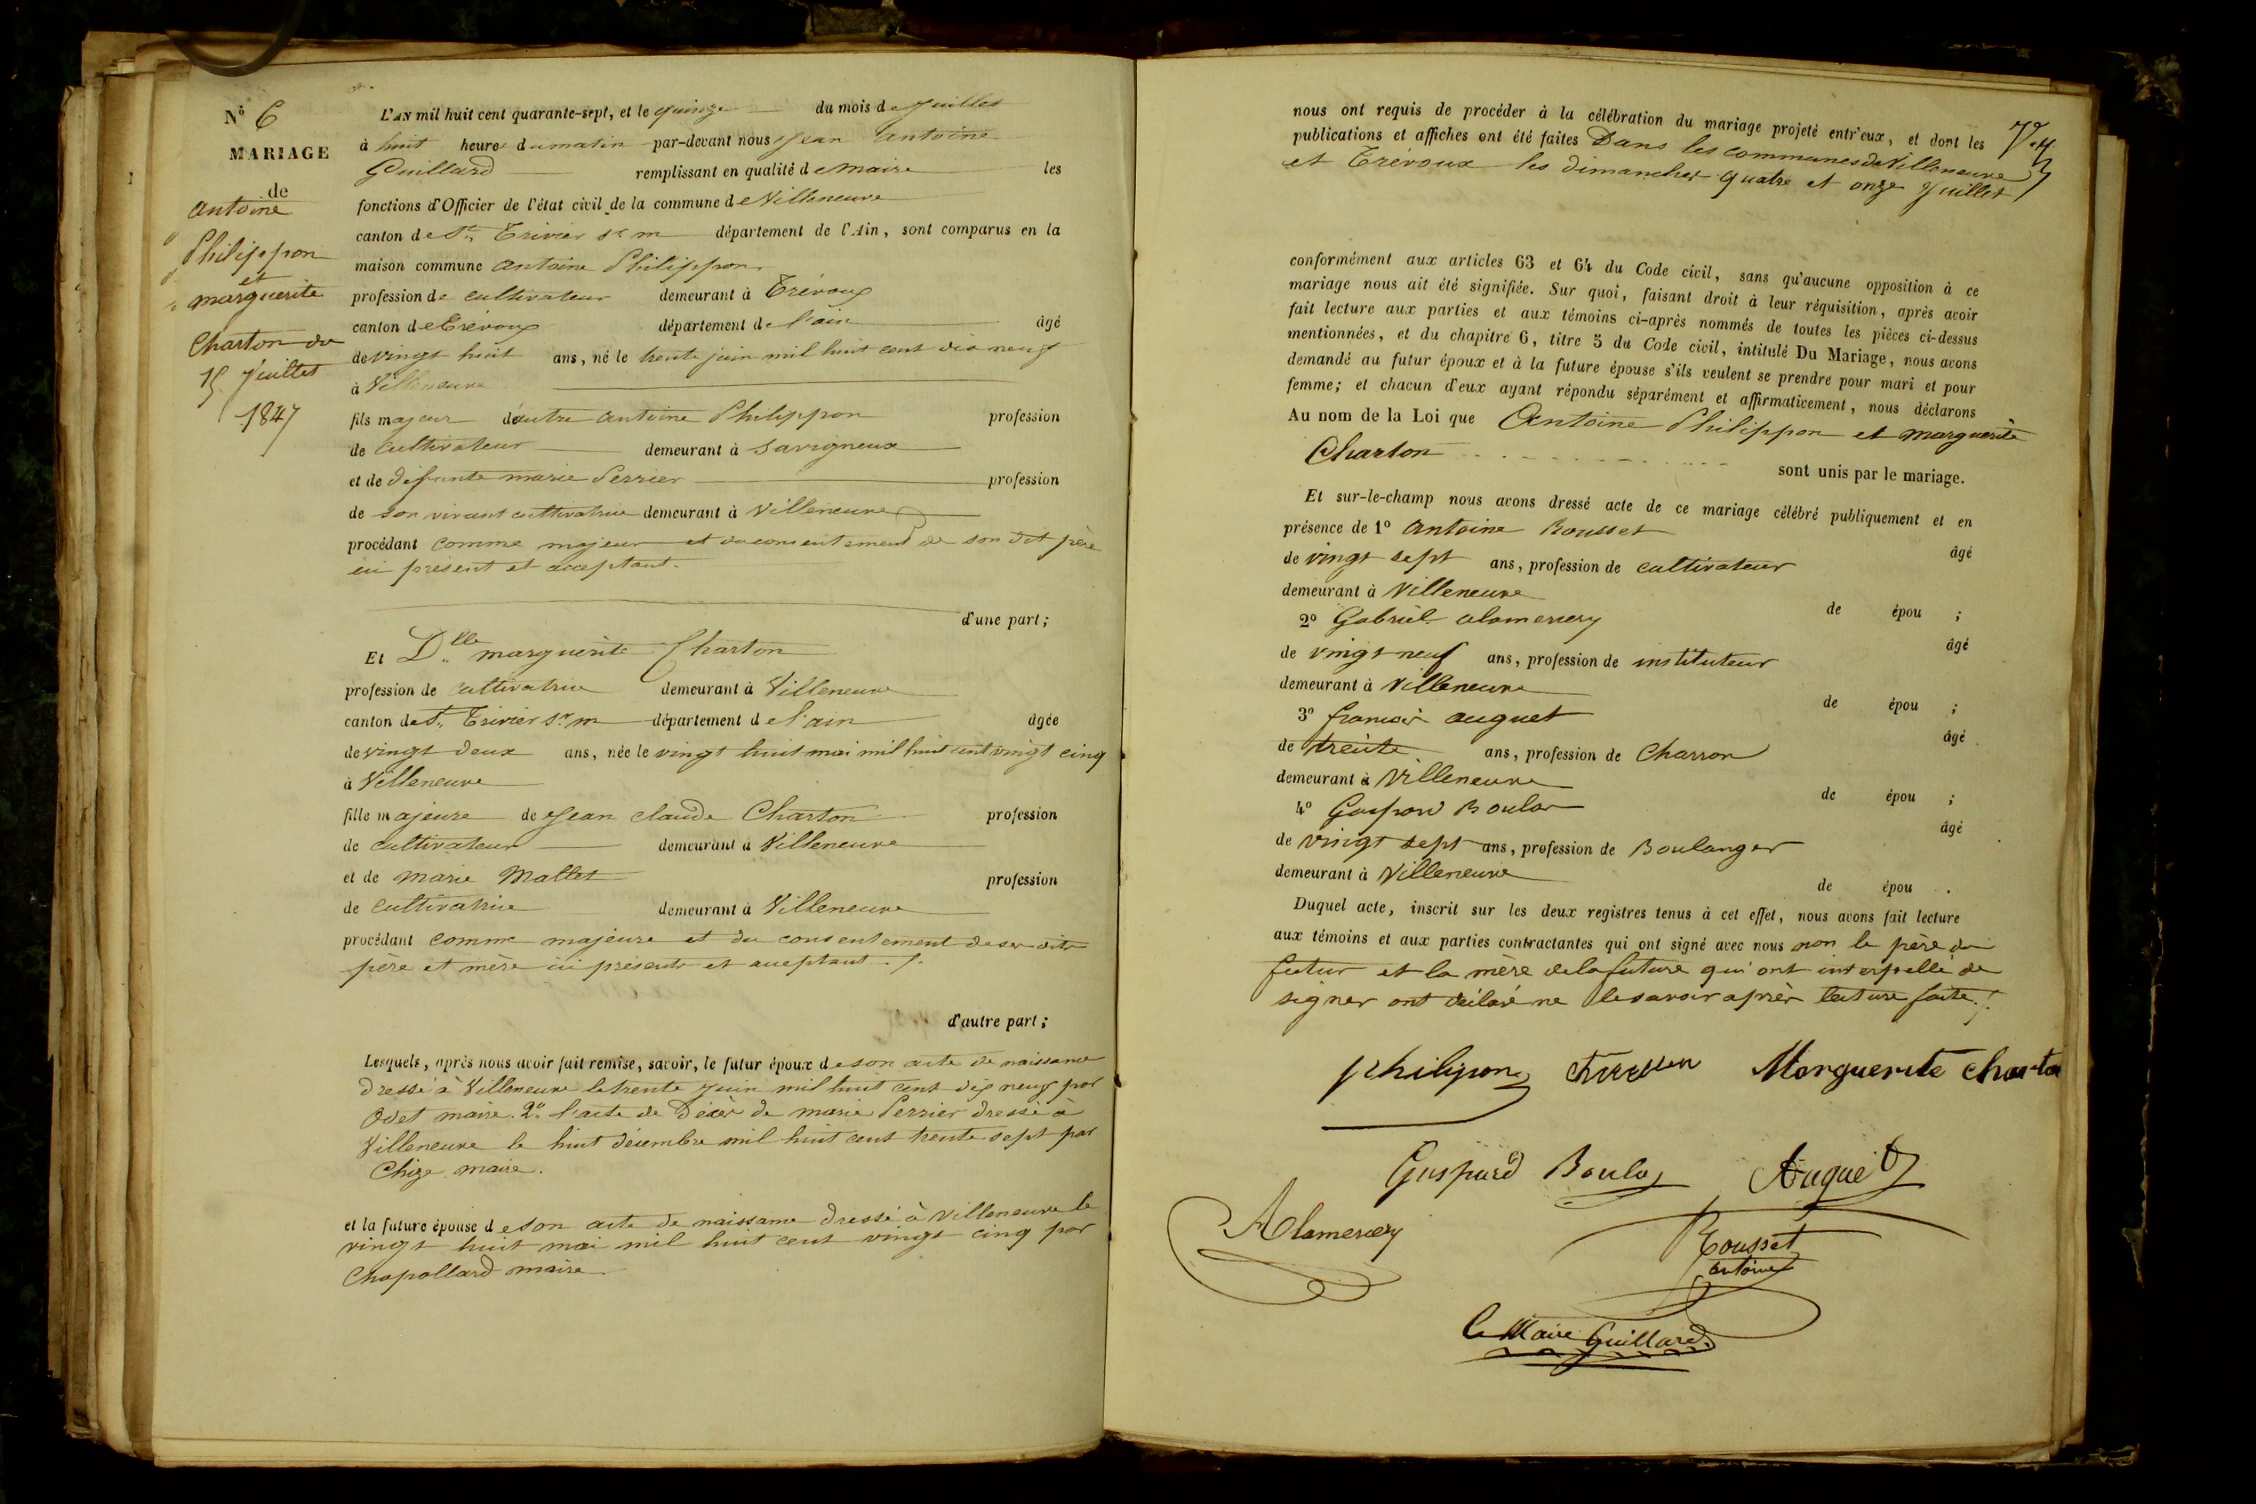 N° 6
MARIAGE
de
antoine
Philippon
et
marguerite
Charton du
15 Juillet
1847
L'AN mil huit cent quarante-sept, et le quinze du mois de Juillet
à huit heures du matin par-devant nous Jean antoine
Guillard remplissant en qualité de maire les
fonctions d'Officier de l'état civil de la commune de Villeneuve
canton de St. Trivier sr m département de l'Ain, sont comparus en la
maison commune antoine Philippon
profession de cultivateur demeurant à Trévoux
canton de Trévoux département de l'ain âgé
de vingt huit ans, né le trente juin mil huit cent dix neuf
à Villeneuve
fils majeur d'autre antoine Philippon profession
de cultivateur demeurant à Savigneux
et de défunte marie Perrier profession
de son vivant cultivatrice demeurant à Villeneuve
procédant comme majeur et du consentement de son dit père
ici présent et acceptant.
d'une part;
Et Dlle marguerite Charton
profession de cultivatrice demeurant à Villeneuve
canton de St. Trivier sr m département de l'ain âgée
de vingt deux ans, née le vingt huit mai mil huit cent vingt cinq
à Villeneuve
fille majeure de Jean claude Charton profession
de cultivateur demeurant à Villeneuve
et de marie Mallet profession
de cultivatrice demeurant à Villeneuve
procédant comme majeure et du consentement de ses dits
père et mère ici présents et acceptant ./.
d'autre part;
Lesquels, après nous avoir fait remise, savoir, le futur époux de son acte de naissance
dressé à Villeneuve le trente juin mil huit cent dix neuf par
Odet maire. 2° l'acte de Décès de marie Perrier dressé à
Villeneuve le huit décembre mil huit cent trente sept par
Chize maire.
et la future épouse de son acte de naissance dressé à Villeneuve le
vingt huit mai mil huit cent vingt cinq par
Chapollard maire
nous ont requis de procéder à la célébration du mariage projeté entr'eux, et dont les
publications et affiches ont été faites Dans les communes de Villeneuve
et Trévoux les dimanches quatre et onze Juillet
conformément aux articles 63 et 64 du Code civil, sans qu'aucune opposition à ce
mariage nous ait été signifiée. Sur quoi, faisant droit à leur réquisition, après avoir
fait lecture aux parties et aux témoins ci-après nommés de toutes les pièces ci-dessus
mentionnées, et du chapitre 6, titre 5 du Code civil, intitulé Du Mariage, nous avons
demandé au futur époux et à la future épouse s'ils veulent se prendre pour mari et pour
femme; et chacun d'eux ayant répondu séparément et affirmativement, nous déclarons
Au nom de la Loi que Antoine Philippon et marguerite
Charton
sont unis par le mariage.
Et sur-le-champ nous avons dressé acte de ce mariage célébré publiquement et en
présence de 1° antoine Rousset
âgé
de vingt sept ans, profession de cultivateur
demeurant à Villeneuve
de épou ;
2° Gabriel alamercery
âgé
de vingt neuf ans, profession de instituteur
demeurant à Villeneuve
de épou ;
3° francois auguet
âgé
de trente ans, profession de Charron
demeurant à Villeneuve
de épou ;
4° Gaspard Boula
âgé
de vingt sept ans, profession de Boulanger
demeurant à Villeneuve
de épou .
Duquel acte, inscrit sur les deux registres tenus à cet effet, nous avons fait lecture
aux témoins et aux parties contractantes qui ont signé avec nous non le père du
futur et la mère de la future qui ont interpellé de
signer ont déclaré ne le savoir après lecture faite ./.
philipon Marguerite charton
Guspard Boula Auguet
Alamercery
Rousset
antoine
Le Maire Guillard